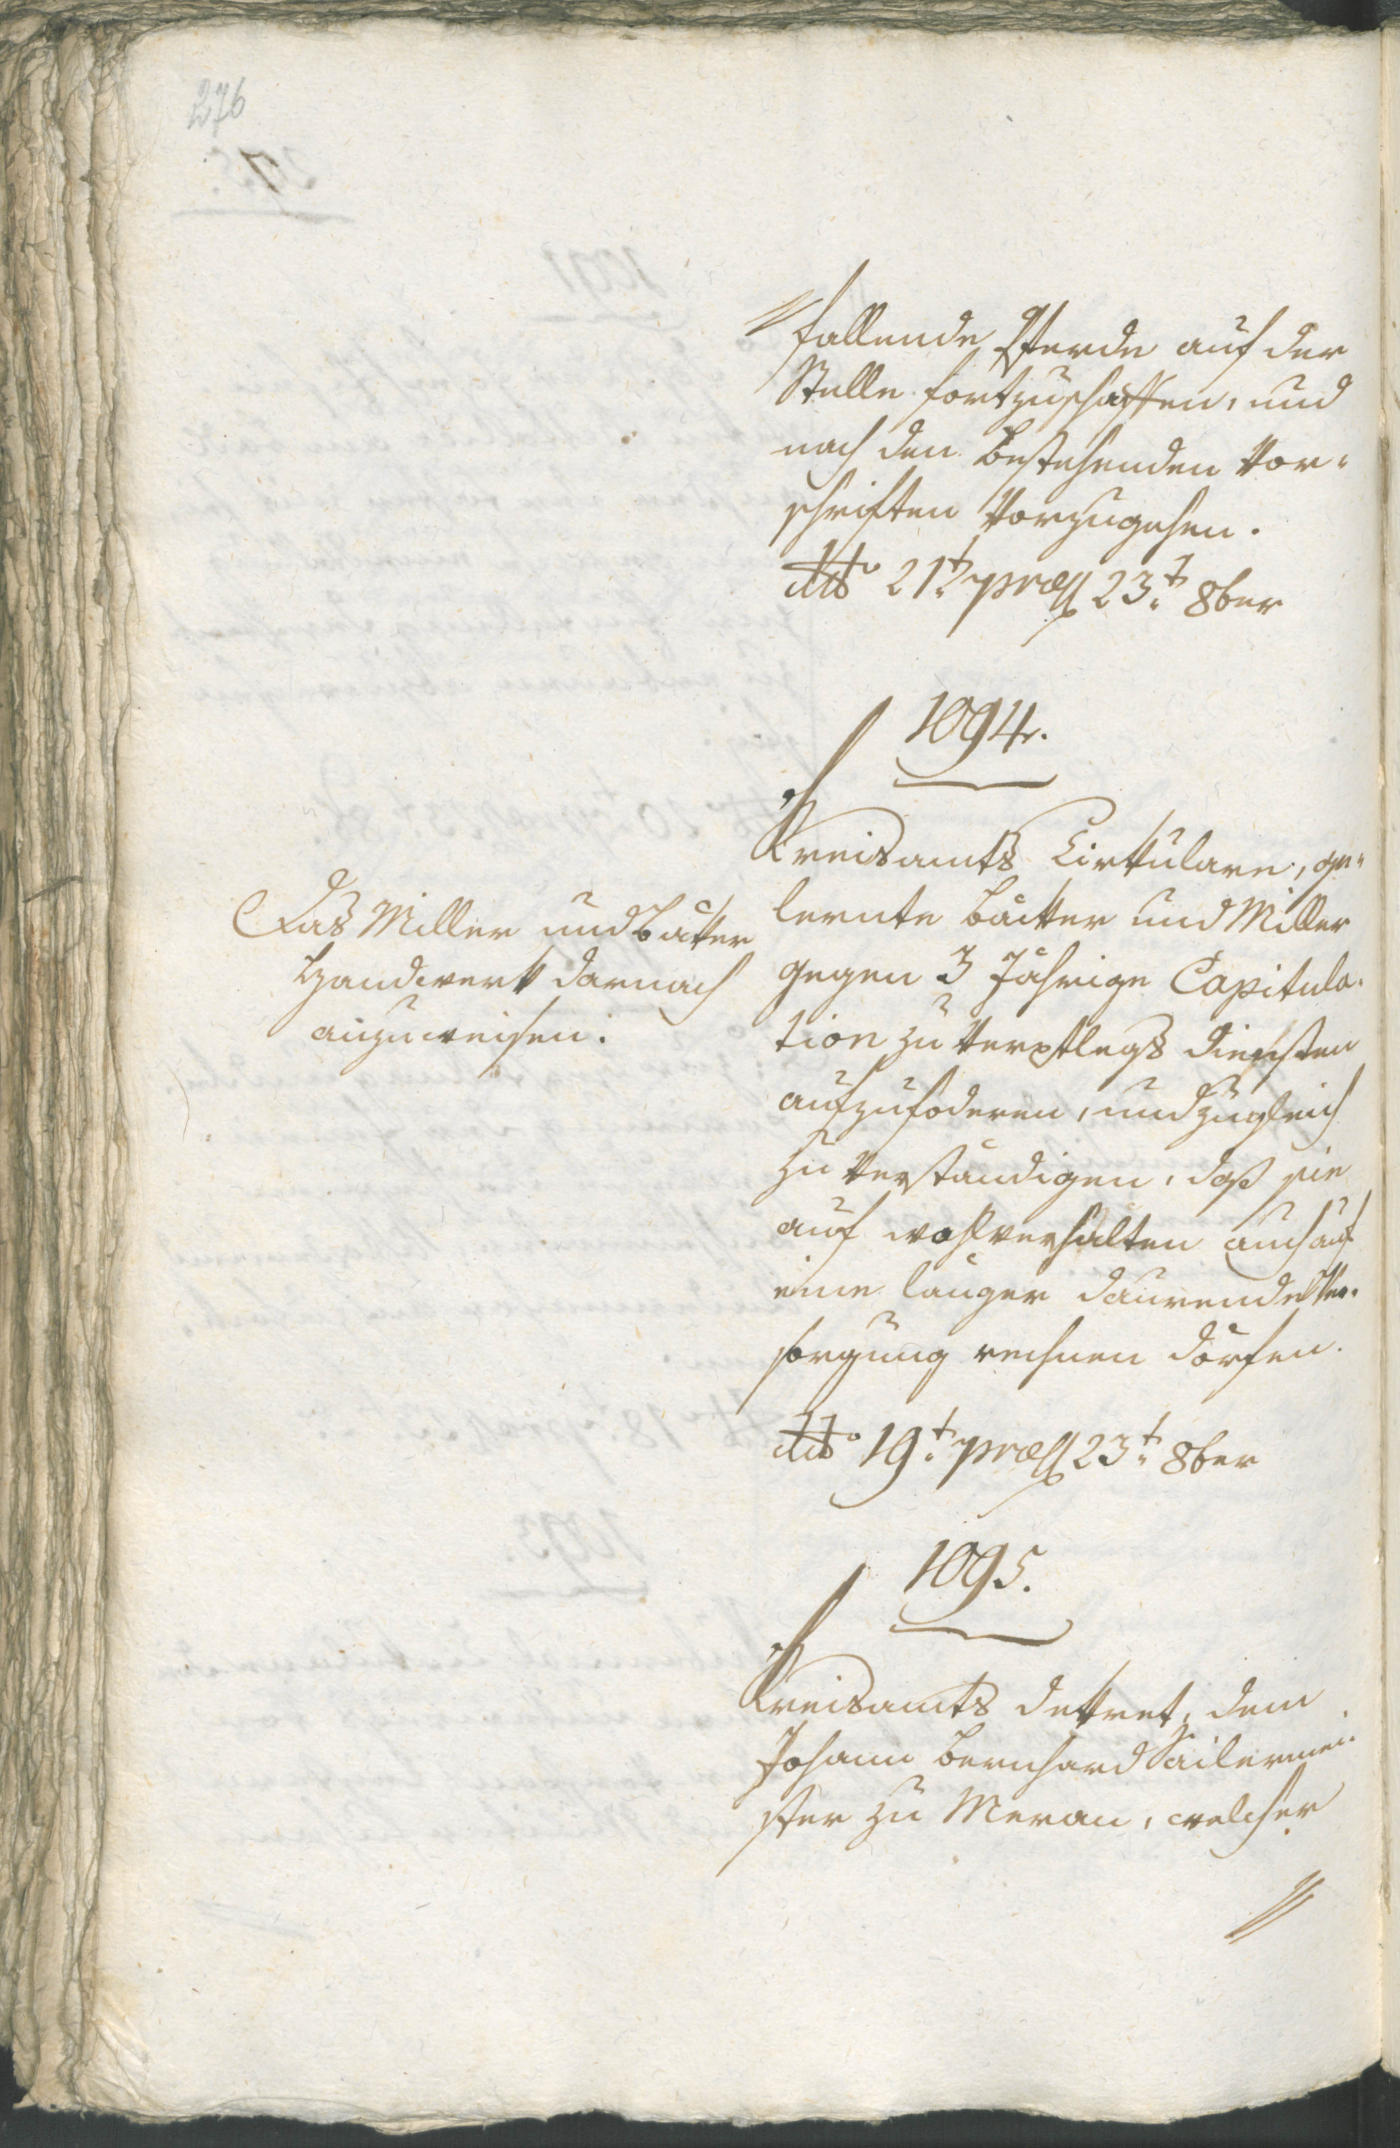 276
fallende Pferde auf der
Stelle fortzuschaffen, und
nach den bestehenden Vor-
schriften Vorzugehen.
dtto 21t. præss 23t. 8ber
1094.
Kreisamts Cirkulare, ge-
lernte Bäcker und Miller
gegen 3 Jährige Capitula-
tion zu Verpflegs Diensten
aufzufoderen, und zugleich
zu verständigen, daß sie
auf wohlverhalten auch auf
eine länger daurende Ver-
sorgung rechnen dörfen.
dtto 19t. præss 23t. 8ber
Das Miller und Bäcker
Handwerk darnach
anzuweisen.
1095.
Kreisamts Dekret, dem
Johann Bernhard Sailermei-
ster zu Meran, welcher